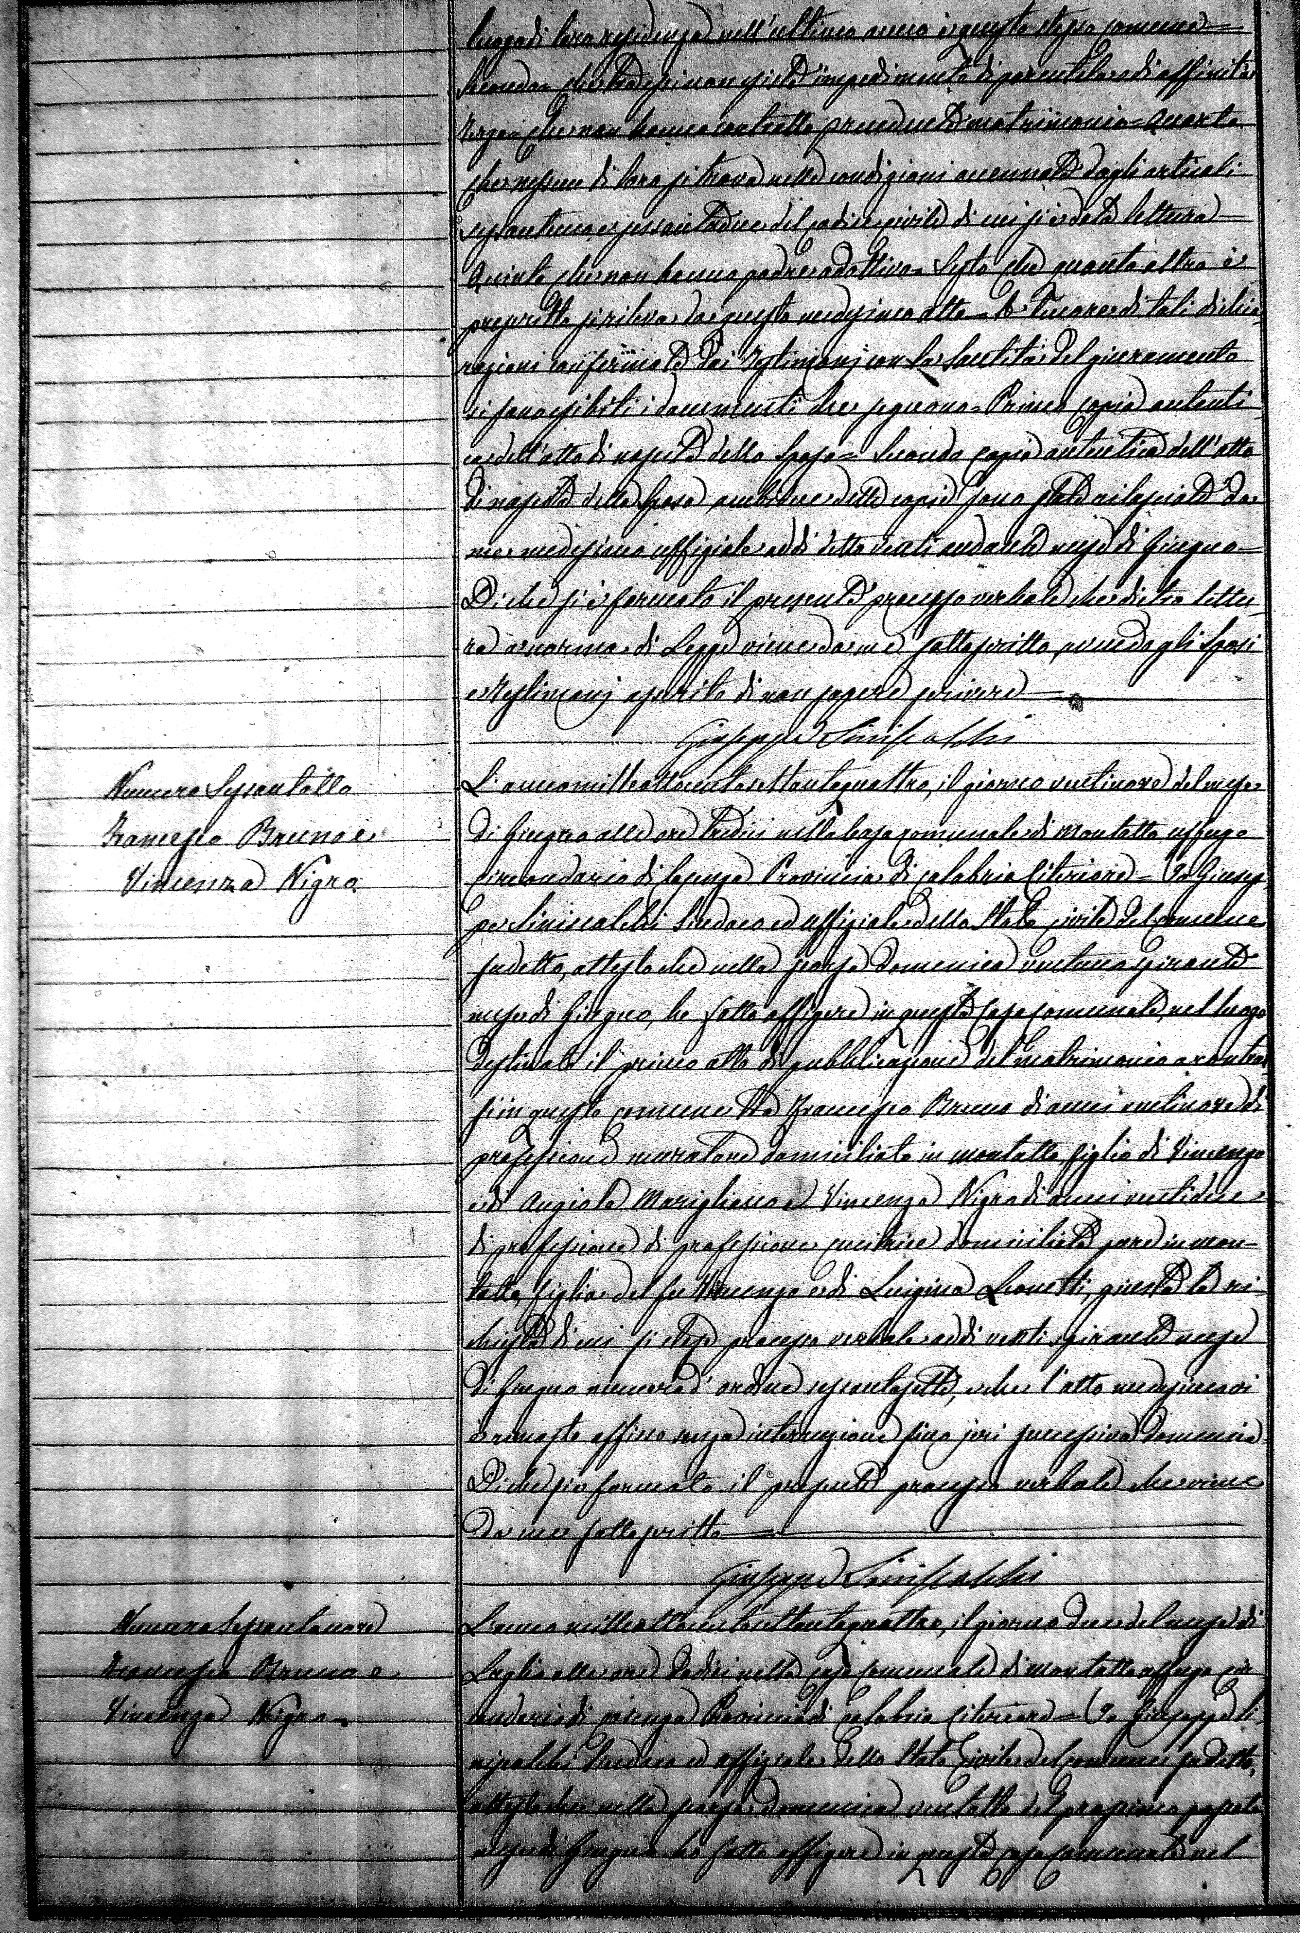 luogo di loro residenza nell'ultimo anno è questo stesso comune
Secondo che tra essi non esiste impedimento di parentela o di affinità
Terzo che non hanno contratto precedente matrimonio = Quarto
che nessuno di loro si trova nelle condizioni accennate dagli articoli
sessantuno e sessantadue del codice civile di cui si è data lettura
Quinto che non hanno padre adottivo = Sesto che quanto altro è
prescritto si rileva da questo medesimo atto = A favore di tali dichia
razioni confermate dai testimonj con la santità del giuramento
si sono esibiti i documenti che seguono = Primo copia autenti
ca dell'atto di nascita dello sposo = Secondo copia autentica dell'atto
di nascita della sposa, ambedue dette copie sono state rilasciate da
me medesimo uffiziale addì detto venti andante mese di Giugno
Di che si è formato il presente processo verbale che dietro lettu
ra a norma di Legge viene da me sottoscritto, avendo gli sposi
e testimonj asserito di non sapere scrivere
Giuseppe Siniscalchi
Numero Sessantotto
Francesco Bruno e
Vincenza Nigro
L'anno mille ottocento settantaquattro, il giorno ventinove del mese
di Giugno alle ore tredici nella casa comunale di Montalto uffugo
circondario di Cosenza Provincia di Calabria Citeriore = Io Giusep
pe Siniscalchi Sindaco ed uffiziale dello Stato civile del comune
sudetto, attesto che nella scorsa domenica ventuno spirante
mese di Giugno, ho fatto affiggere in questa casa comunale, nel luogo
destinato il primo atto di pubblicazione del matrimonio a contrar
si in questo comune tra Francesco Bruno di anni ventinove di
professione muratore domiciliato in Montalto figlio di Vincenzo
e di Angiola Marigliano e Vincenza Nigro di anni ventidue
di professione di professione cucitrice domiciliata pure in Mon
talto, figlia del fu Vincenzo e di Luigina Leonetti, giusta la ri
chiesta di cui si stese processo verbale addì venti spirante mese
di Giugno numero d'ordine sessantasette, e che l'atto medesimo vi
è rimasto affisso senza interruzione fino jeri successiva domenica
Di che si è formato il presente processo verbale che viene
da me sottoscritto
Giuseppe Siniscalchi
Numero Sessantanove
Francesco Bruno e
Vincenza Nigro
L'anno mille ottocento settantaquattro, il giorno due del mese di
Luglio alle ore dodici nella casa comunale di Montalto uffugo cir
condario di Cosenza Provincia di Calabria Citeriore = Io Giuseppe Si
niscalchi Sindaco ed uffiziale dello Stato Civile del comune sudetto,
attesto che nella scorsa domenica ventotto del prossimo passato
mese di Giugno ho fatto affiggere in questa casa comunale nel